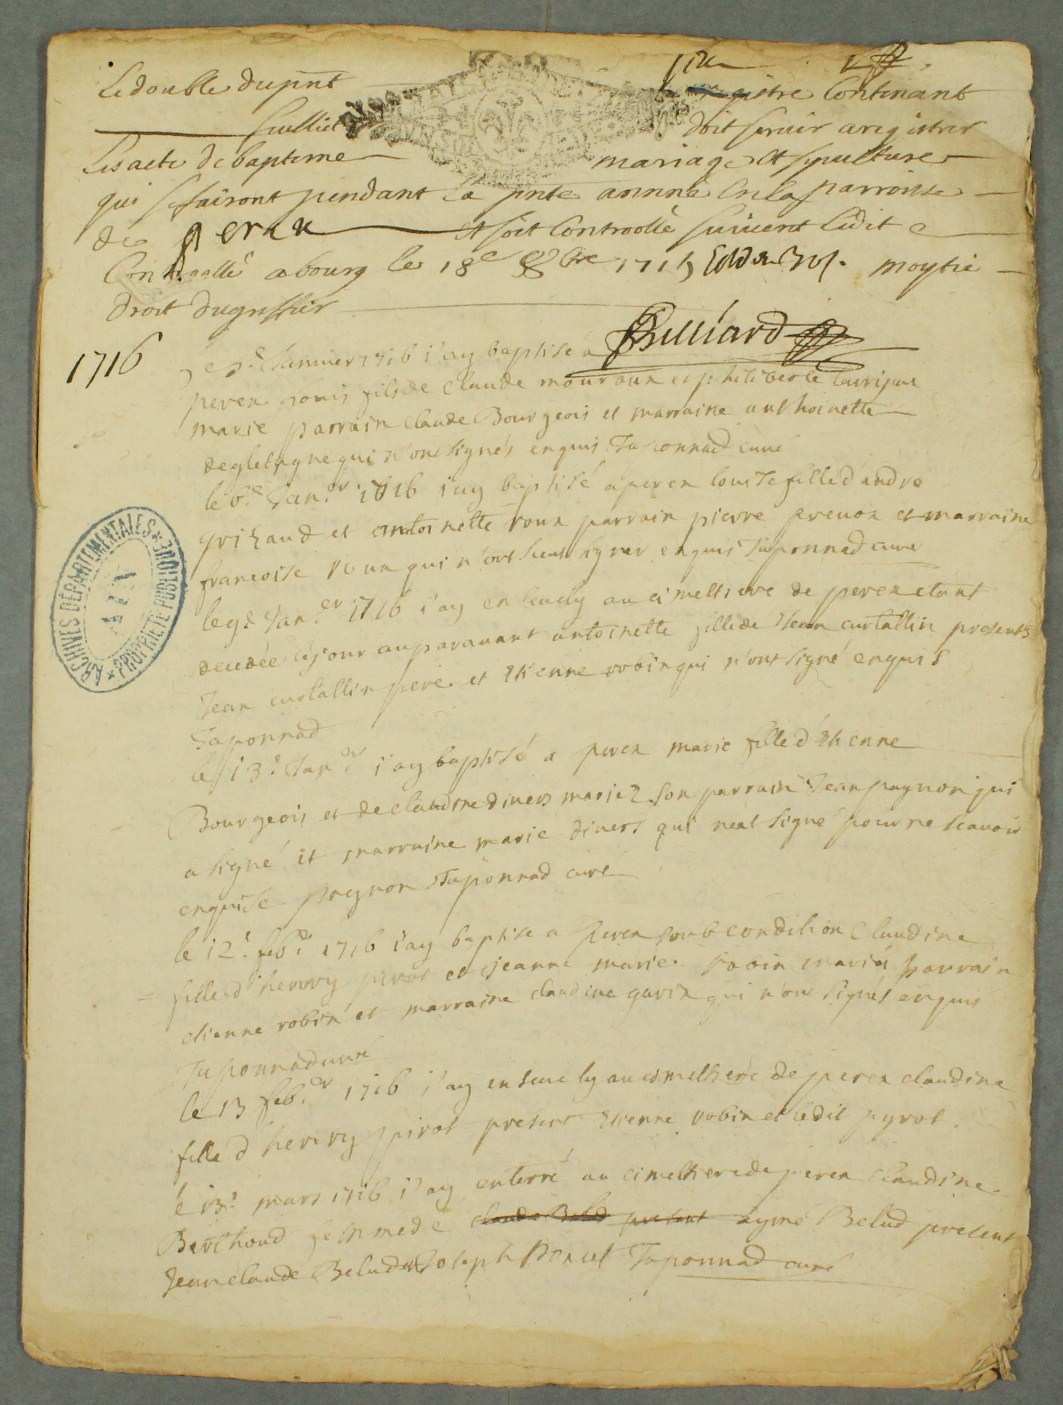 Le double du pnt registre Contenant
feuillet doit servir a registrer
Les acte de bapteme mariage et sepulture
qui se fairont pendant la pnte année en la parroisse
de perex et soit Controollé suivent l'edit
Controollé a bourg le 18e 8bre 1715 moytie
droit du greffier
Billiard
1716
Le janvier 1716 j'ay baptisé a
perex louis fils de Claude mouroux et philiberte
marie parrain claude Bourgeois et marraine anthoinette
qui n'ont signés enquis Taponnad curé
le 6e Janer 1716 j'ay baptisé a perex louise fille d'andre
grizaud et antoinette roux parrain pierre prevox et marraine
francoise roux qui n'ont sceu signer enquis Taponnad curé
le 9e Janer 1716 j'ay ensevely au cimettiere de perex etant
decedée le jour auparavant antoinette fille de Jean curtallin presents
Jean curtallin pere et Etienne robin qui n'ont signé enquis
Taponnad
le 13e Janer j'ay baptisé a perex marie fille d'Etienne
Bourgeois et de claudine diners mariez son parrain Jean pagnon qui
a signé et marraine marie diners qui n'eat signé pour ne scavoir
enquise pagnon Taponnad curé
le 12e febr 1716 j'ay baptise a perex soub condition Claudine
fille d'henry pirot et jeanne marie robin mariés parrain
etienne robin et marraine claudine gavix qui n'ont signés enquis
Taponnad curé
le 13 febr 1716 j'ay ensevely au cimettiere de perex claudine
fille d'henry pirot present Etienne robin et ledit pyrot
le 13e mars 1716 j'ay enterré au cimettiere de perex claudine
Berthoud femme de claude Belud present aymé Belud present
Jean claude Belud et Joseph Poncet Taponnad curé
ARCHIVES DÉPARTEMENTALES
AIN
PROPRIÉTÉ PUBLIQUE